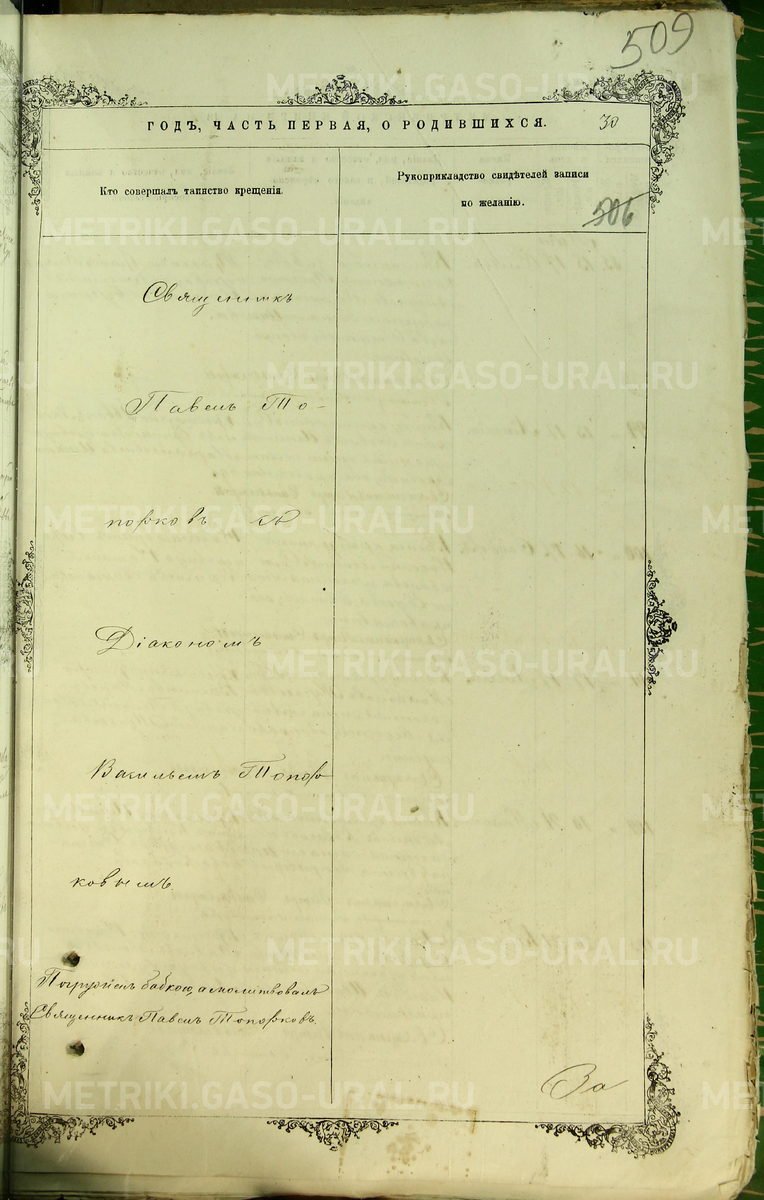 509
ГОДЪ, ЧАСТЬ ПЕРВАЯ, О РОДИВШИХСЯ.
30
Кто совершалъ таинство крещенія.
Рукоприкладство свидѣтелей записи
по желанію.
506
Священникъ
Павелъ То-
порковъ съ
Діакономъ
Васильемъ Топор
ковымъ.
Погружен бабкою, а молитвовалъ
Священникъ Павелъ Топорковъ.
За
METRIKI.GASO-URAL.RU